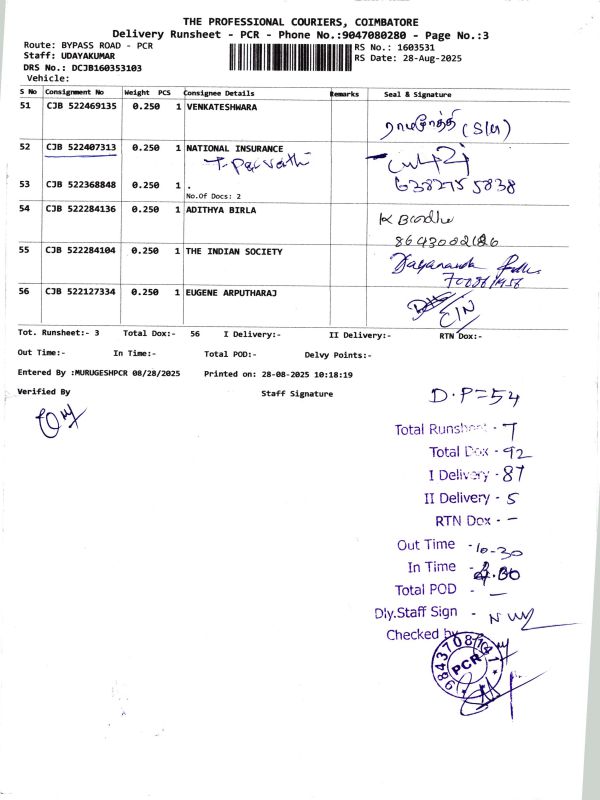 THE PROFESSIONAL COURIERS, COIMBATORE
Delivery Runsheet - PCR - Phone No.:9047080280 - Page No.:3
Route: BYPASS ROAD - PCR
RS No.: 1603531
Staff: UDAYAKUMAR
RS Date: 28-Aug-2025
DRS No.: DCJB160353103
Vehicle:
S No Consignment No Weight PCS Consignee Details Remarks Seal & Signature
51 CJB 522469135 0.250 1 VENKATESHWARA
52 CJB 522407313 0.250 1 NATIONAL INSURANCE
T. Parvathi
53 CJB 522368848 0.250 1 .
6382755838
No.Of Docs: 2
54 CJB 522284136 0.250 1 ADITHYA BIRLA
55 CJB 522284104 0.250 1 THE INDIAN SOCIETY
Dayananda
56 CJB 522127334 0.250 1 EUGENE ARPUTHARAJ
Tot. Runsheet:- 3 Total Dox:- 56 I Delivery:- II Delivery:- RTN Dox:-
Out Time:- In Time:- Total POD:- Delvy Points:-
Entered By :MURUGESHPCR 08/28/2025 Printed on: 28-08-2025 10:18:19
Verified By Staff Signature
D.P=54
Total Runsheet - 7
Total Dox - 92
I Delivery - 87
II Delivery - 5
RTN Dox - -
Out Time - 10-30
In Time -
Total POD - -
Dly.Staff Sign -
Checked by
PCR